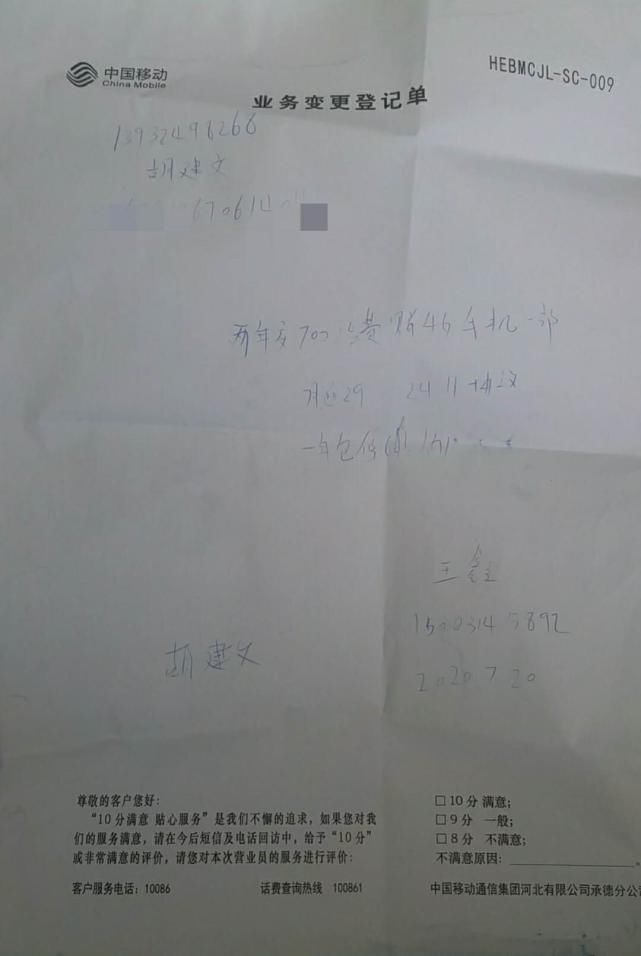 中国移动
China Mobile
HEBMCJL-SC-009
业务变更登记单
胡建文
670614
两年交700话费 4G手机一部
29 24 协议
一年包
王鑫
胡建文
2020 7 20
尊敬的客户您好:
“10分满意 贴心服务”是我们不懈的追求,如果您对我
们的服务满意,请在今后短信及电话回访中,给予“10分”
或非常满意的评价,请您对本次营业员的服务进行评价:
客户服务电话:10086 话费查询热线 100861
□10分 满意;
□9分 一般;
□8分 不满意;
不满意原因:
中国移动通信集团河北有限公司承德分公